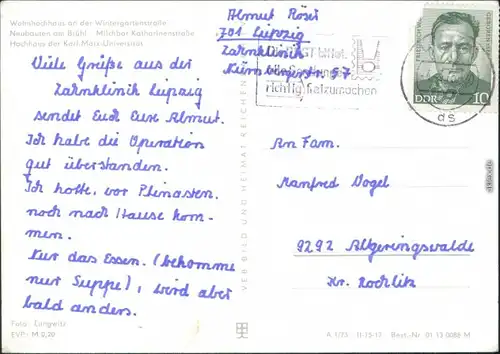 Wohnhochhaus an der Wintergartenstraße
Neubauten am Brühl Milchbar Katharinenstraße
Hochhaus der Karl-Marx-Universität
Almut Rösi
701 Leipzig
Zahnklinik
Nürnbergerstr. 57
richtig freizumachen
DDR 10
Viele Grüße aus der
Zahnklinik Leipzig
sendet Euch Eure Almut.
Ich habe die Operation
gut überstanden.
Ich hoffe, vor Pfingsten
noch nach Hause kom-
men.
Nur das Essen, (bekomme
nur Suppe), wird aber
bald anders.
An Fam.
Manfred Vogel
9292 Altgeringswalde
Kr. Rochlitz
VEB BILD UND HEIMAT REICHENBACH
Foto: Langwitz
EVP: M 0,20
A 1/75 II-15-17 Best.-Nr. 01 13 0088 M